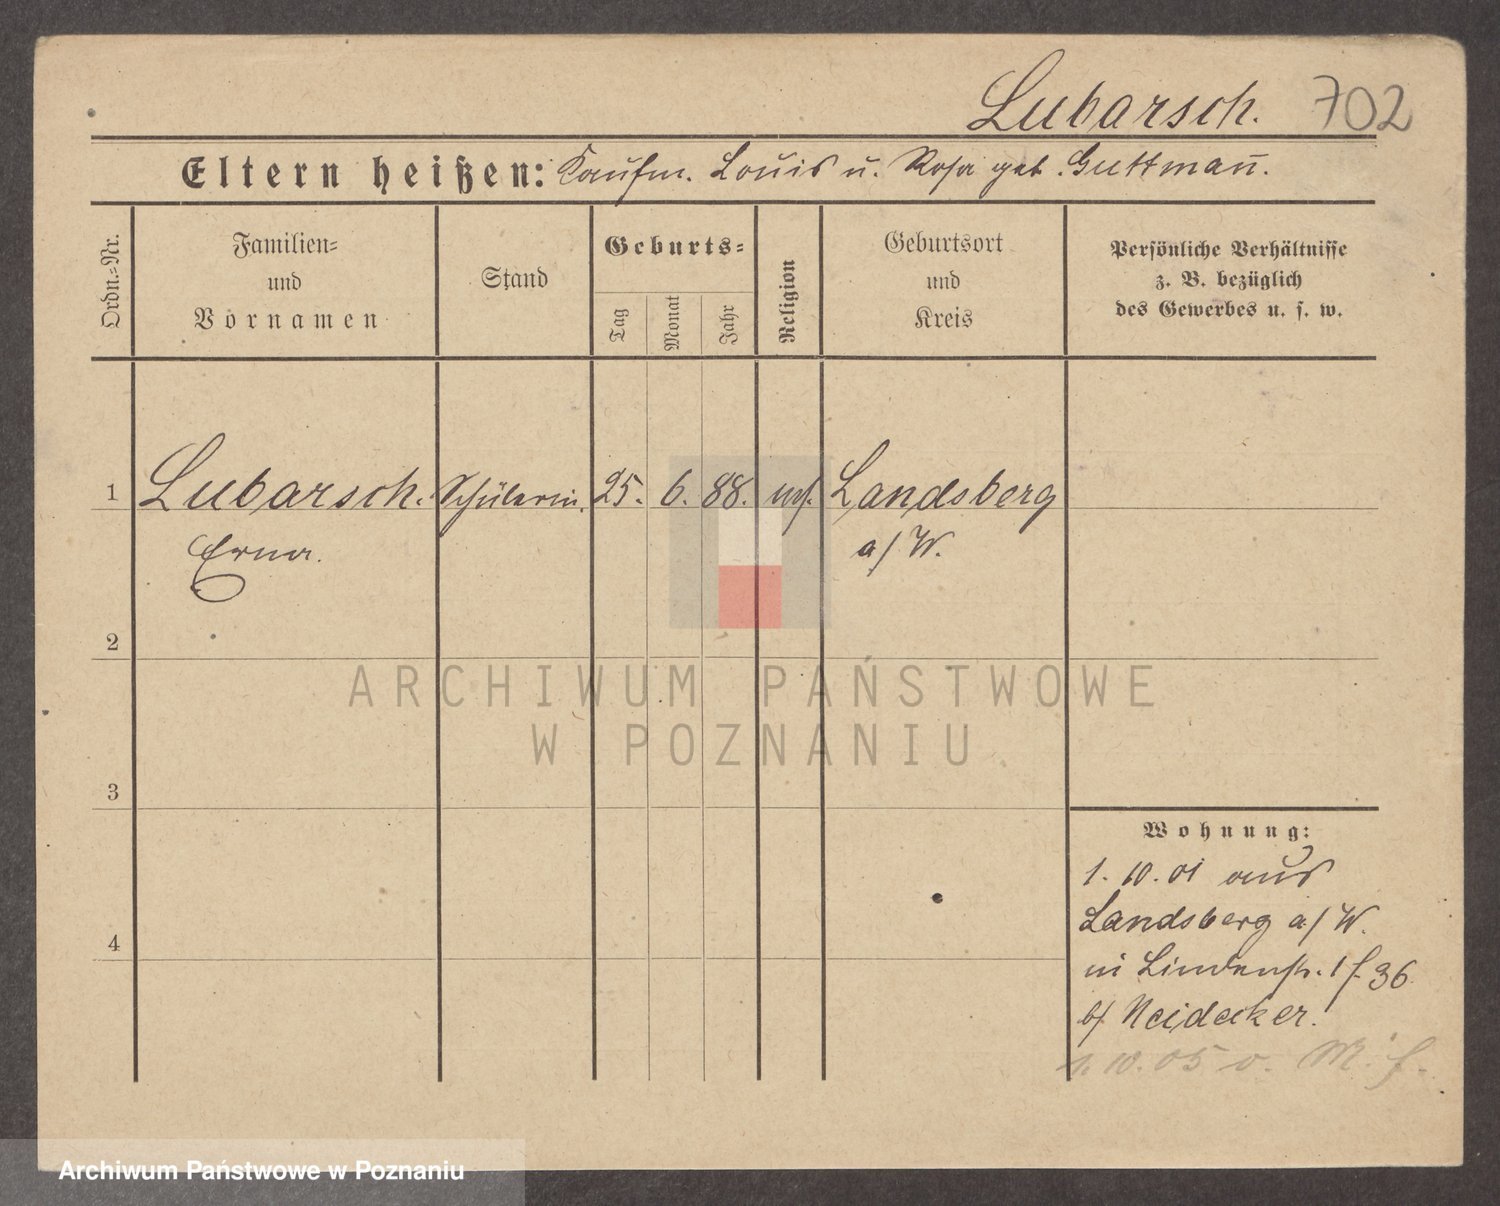 Lubarsch. 702
Eltern heißen: Kaufm. Louis u. Rosa geb. Guttmañ.
Ordn.=Nr.
Familien=
und
Vornamen
Stand
Geburts=
Tag
Monat
Jahr
Religion
Geburtsort
und
Kreis
Persönliche Verhältnisse
z. B. bezüglich
des Gewerbes u. s. w.
1 Lubarsch. Schülerin. 25. 6. 88. mos. Landsberg
Erna. a/W.
2
3
4
Wohnung:
1. 10. 01 aus
Landsberg a/W.
in Lindenstr. 1 f. 36
b/ Neidecker.
1. 10. 05 v. M. f.
ARCHIWUM PAŃSTWOWE
W POZNANIU
Archiwum Państwowe w Poznaniu